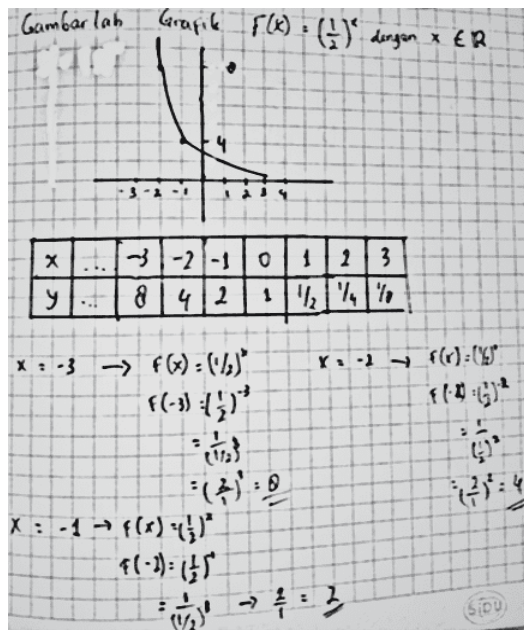 Gambarlah Grafik F(x) = (1/2)^x dengan x ∈ R
8
4
-3 -2 -1 1 2 3 4
x ... -3 -2 -1 0 1 2 3
y ... 8 4 2 1 1/2 1/4 1/8
x = -3 → F(x) = (1/2)^x
F(-3) = (1/2)^-3
= 1/(1/2)^3
= (2/1)^3 = 8
x = -2 → F(x) = (1/2)^x
F(-2) = (1/2)^-2
= 1/(1/2)^2
= (2/1)^2 = 4
x = -1 → F(x) = (1/2)^x
= 1/(1/2)^1 → 2/1 = 2
SiDU